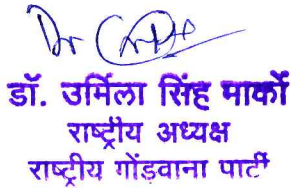 डॉ. उर्मिला सिंह मार्को
राष्ट्रीय अध्यक्ष
राष्ट्रीय गोंडवाना पार्टी